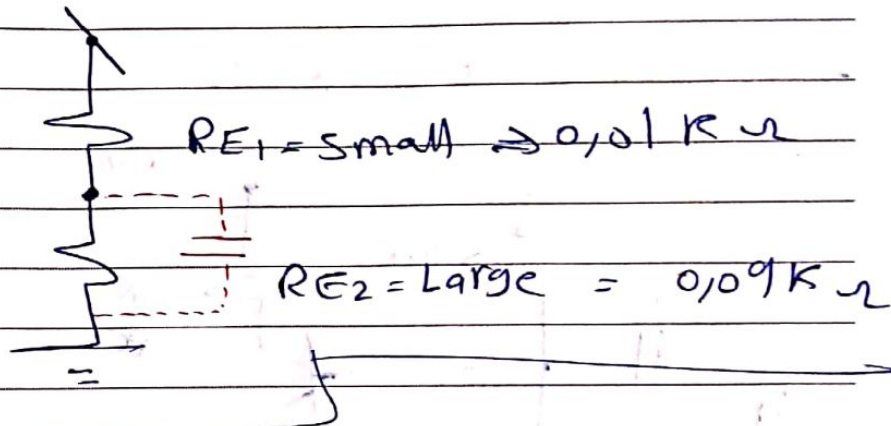 RE1 = small ⇒ 0,01 K Ω
RE2 = Large = 0,09 K Ω